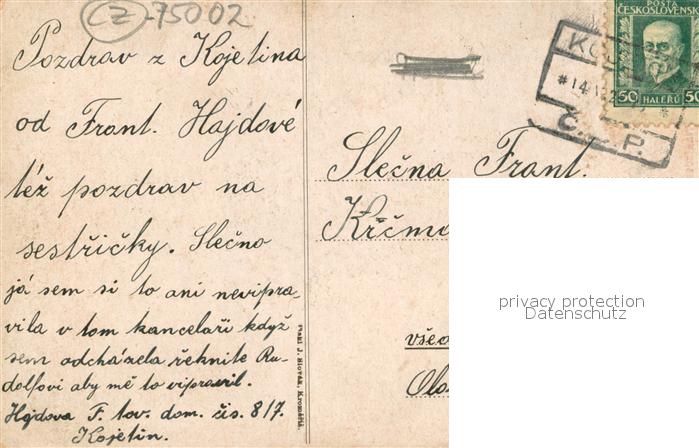 CZ-75002
Pozdrav z Kojetina
od Frant. Hajdové
též pozdrav na
sestřičky. Slečno
já sem si to ani nevipra-
vila v tom kanceláři když
sem odcházela řekněte Ru-
dolfovi aby mě to vipravil.
Hajdova F. tov. dom. čís. 817.
Kojetin.
J. Slovák, Kroměříž.
POŠTA
ČESKOSLOVENSKÁ
50 HALÉŘŮ 50
Č. P.
Slečna Frant.
Křčmo
všeo
Olo
privacy protection
Datenschutz